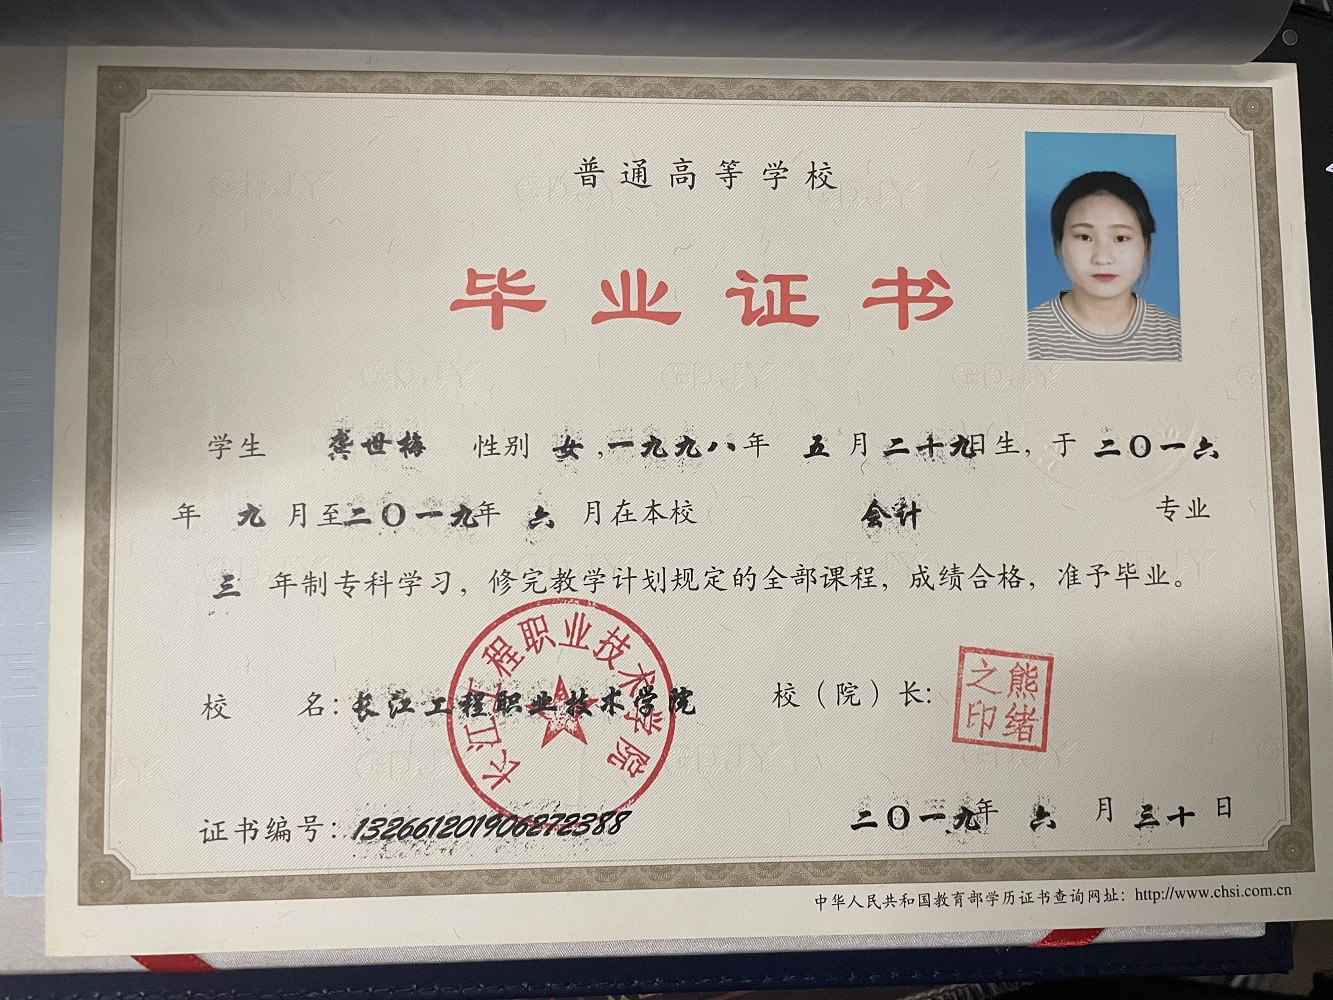 普通高等学校
毕业证书
学生 龚世梅 性别 女,一九九八年 五 月二十九日生，于 二〇一六
年 九 月至二〇一九年 六 月在本校 会计 专业
三 年制专科学习，修完教学计划规定的全部课程，成绩合格，准予毕业。
校 名：长江工程职业技术学院 校（院）长：
长江工程职业技术学院
熊绪之印
证书编号：132661201906272388 二〇一九年 六 月 三十 日
中华人民共和国教育部学历证书查询网址：http://www.chsi.com.cn